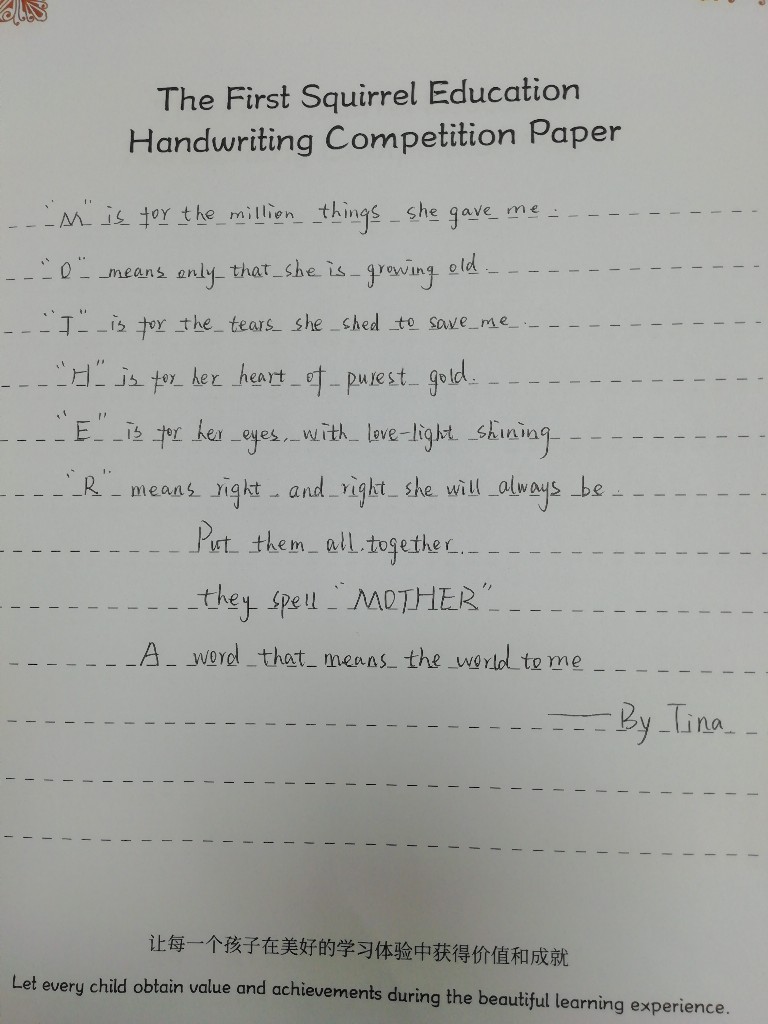 The First Squirrel Education
Handwriting Competition Paper
"M" is for the million things she gave me.
"O" means only that she is growing old.
"T" is for the tears she shed to save me.
"H" is for her heart of purest gold.
"E" is for her eyes, with love-light shining
"R" means right, and right she will always be.
Put them all together.
they spell "MOTHER"
A word that means the world to me
—— By Tina
让每一个孩子在美好的学习体验中获得价值和成就
Let every child obtain value and achievements during the beautiful learning experience.